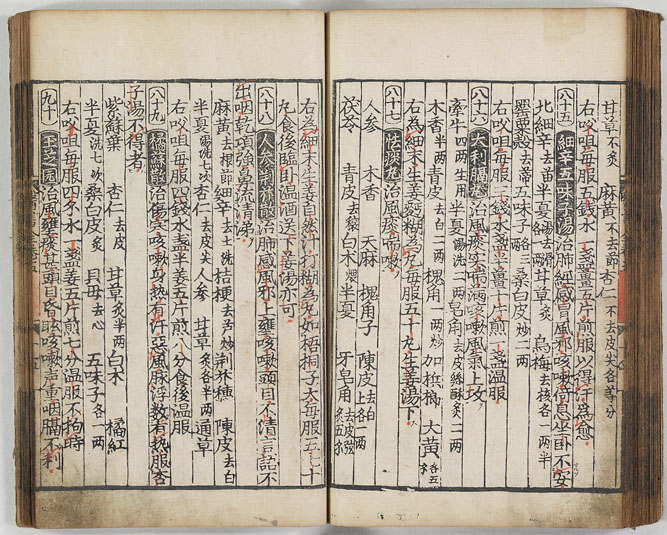 甘草不炙 麻黄不去節 杏仁不去皮尖各等分
右㕮咀每服五錢水一盞薑五片煎服以得汗為愈
八十五 細辛五味子湯 治肺經感冒風邪咳嗽倚息坐卧不安
北細辛去苗 半夏 甘草炙 烏梅去核各一兩半
罌粟殻去蒂 五味子各三 桑白皮炒二兩
右㕮咀每服三錢水二盞薑十片煎一盞溫服
八十六 大利膈 治風痰 咳嗽風氣上攻
牽牛四兩生用 半夏湯洗一兩 皂角去皮絲酥炙二兩
木香一兩 青皮去白一兩 槐角一兩炒 大黄
右為細末生姜 糊為丸每服五十丸生姜湯下
八十七 祛痰丸 治風痰喘嗽
人参 木香 天麻 槐角子 陳皮去白
茯苓 青皮去 白术煨 半夏 牙皂角
右為細末生姜自然汁打糊為丸如梧桐子大每服五七十
丸食後臨卧溫酒送下姜湯亦可
八十八 人参荆芥散 治肺感風邪上壅咳嗽頭目不清言語不
出咽乾項強鼻流清涕
麻黄去根節 細辛去土洗 桔梗去舌炒 荆芥穗 陳皮去白
半夏湯洗七次 杏仁去皮尖 人参 甘草炙各半兩 通草
右㕮咀每服四錢水盞半姜五片煎八分食後溫服
八十九 橘蘇散 治傷 咳嗽身熱有汗惡風脉浮数有熱服杏
子湯不得者
紫蘇葉 杏仁去皮 甘草炙半兩 白术 橘紅
半夏洗七次 桑白皮炙 貝母去心 五味子各一兩
右㕮咀每服四分水一盞姜五片煎七分溫服不拘時
九十 玉芝圓 治風壅痰甚頭目昏眩咳嗽声重咽膈不利